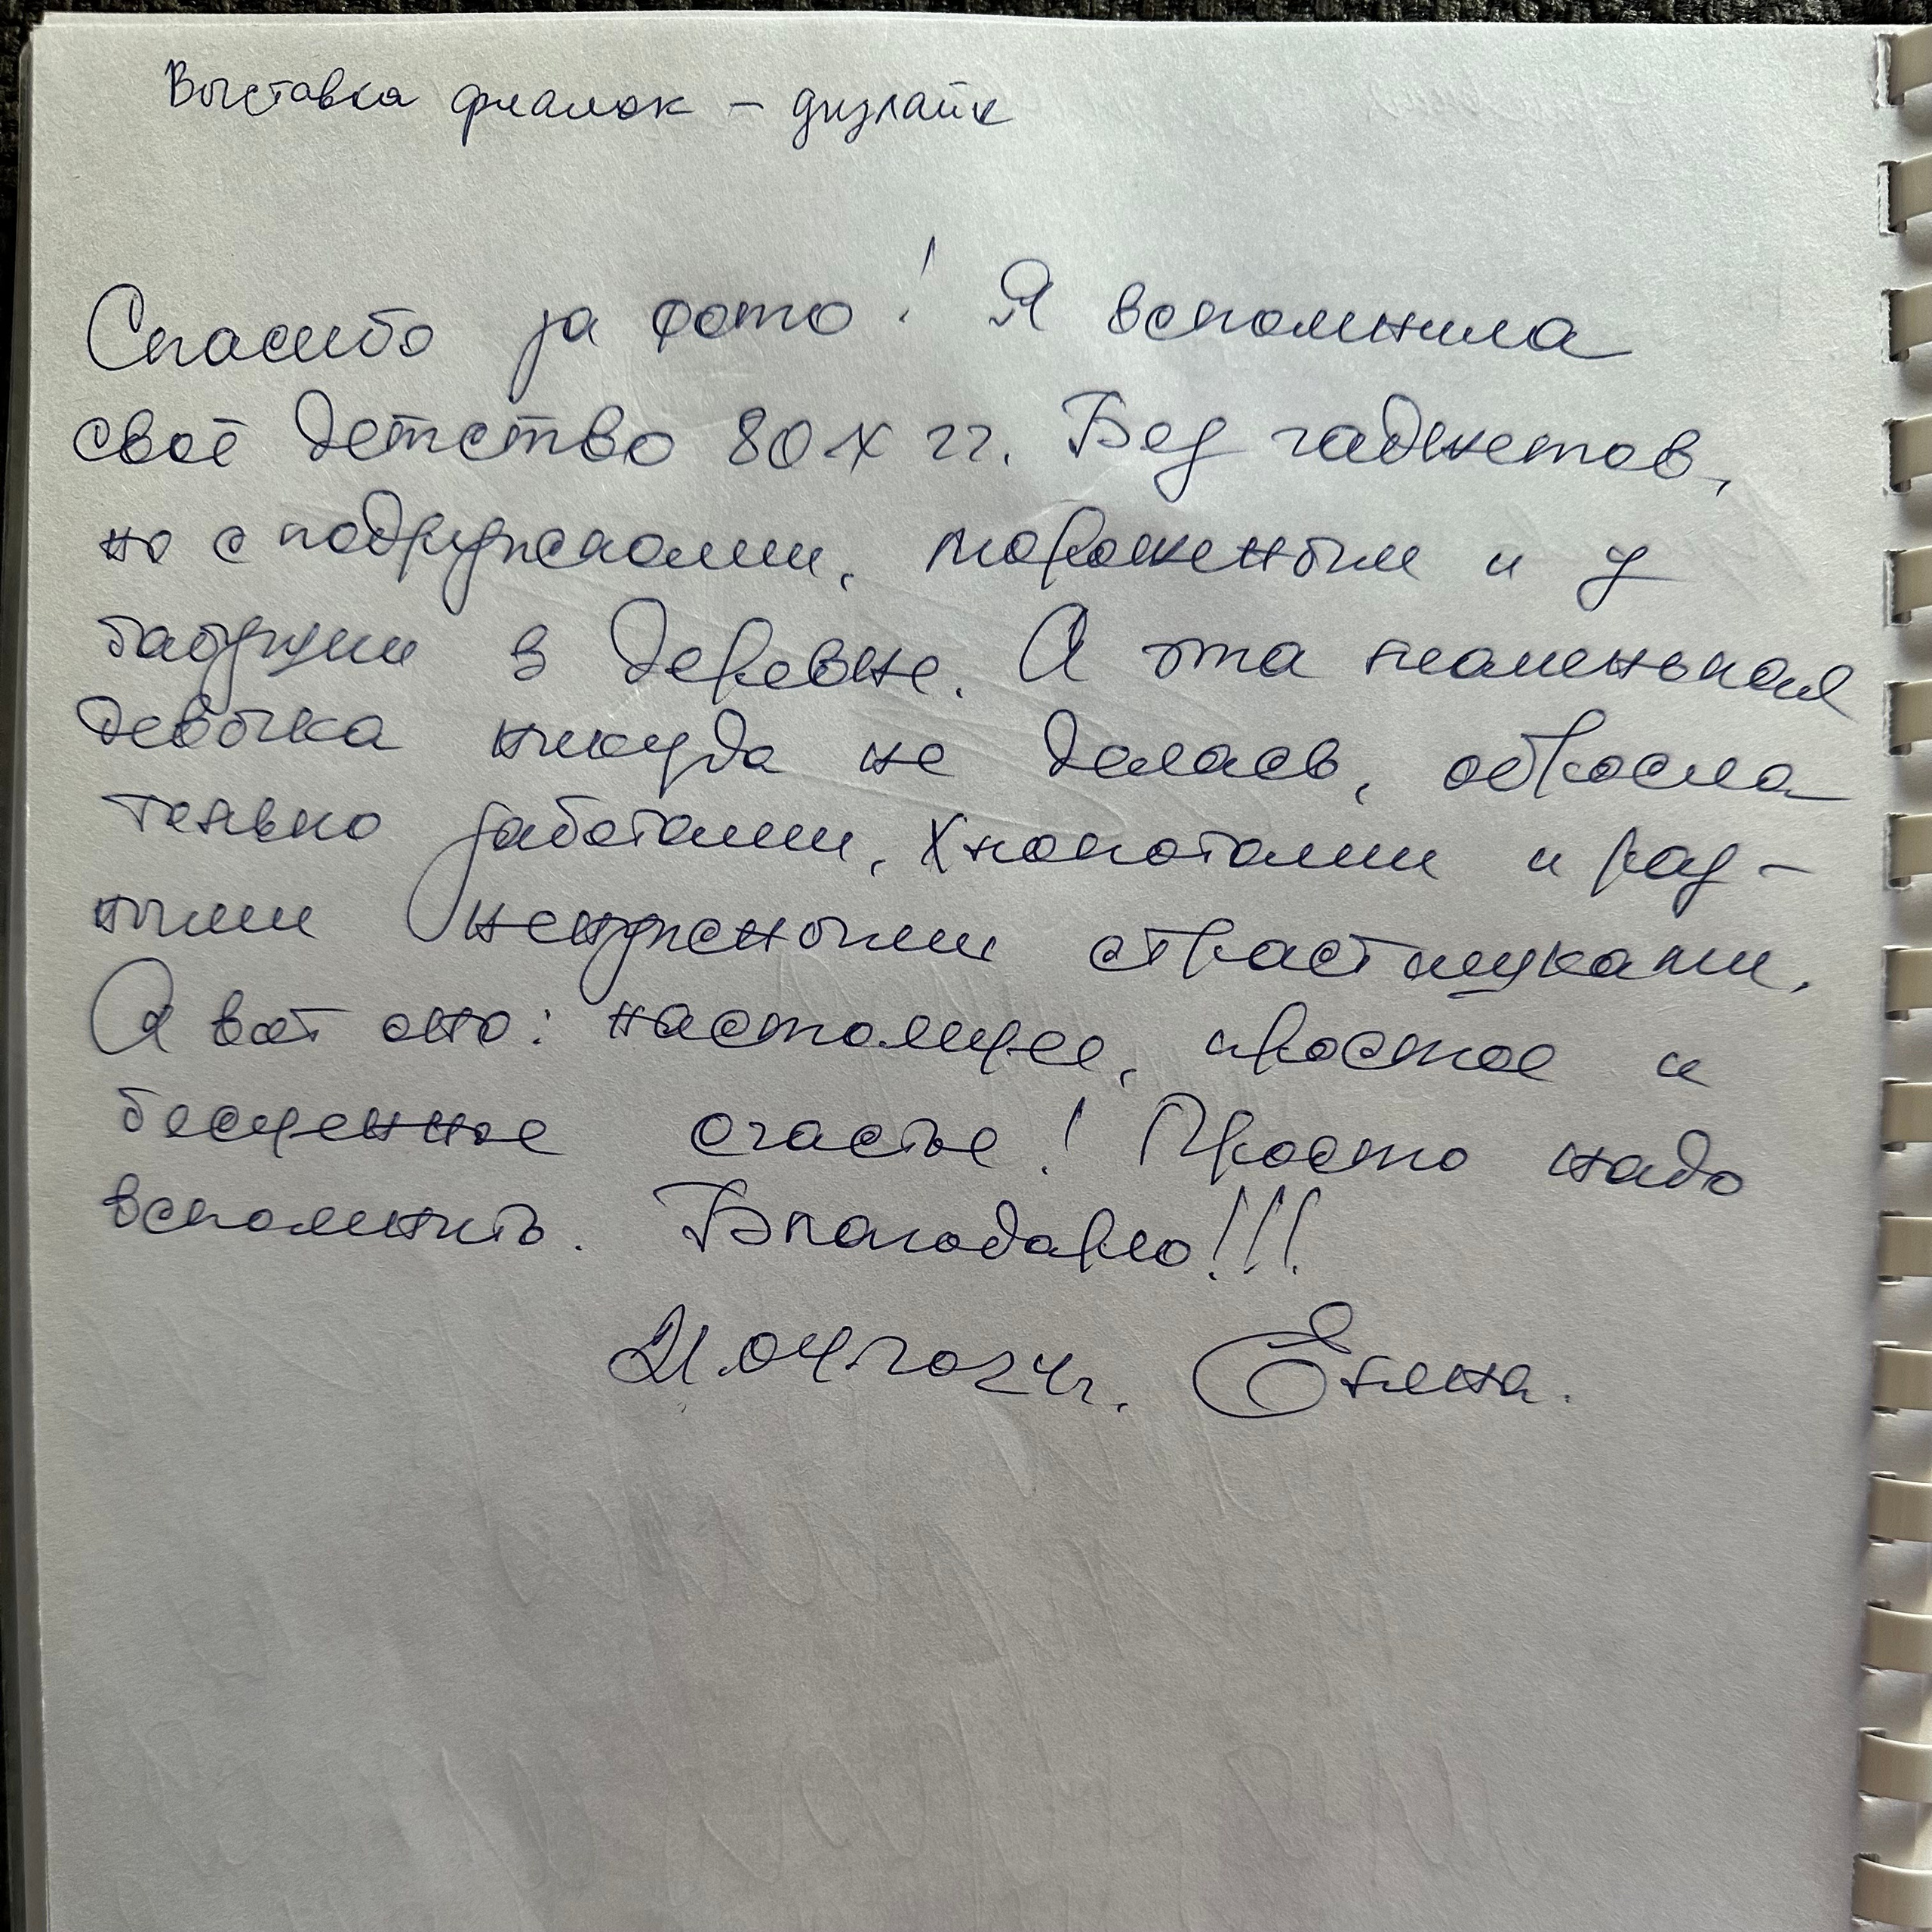 Выставка фиалок – дизлайк
Спасибо за фото! Я вспомнила
своё детство 80х гг. Без гаджетов,
но с подружками, мороженым и у
бабушки в деревне. А эта маленькая
девочка никуда не делась, обросла
только заботами, хлопотами и раз-
ными ненужными страстишками.
А вот оно: настоящее, простое и
бесценное счастье! Просто надо
вспомнить. Благодарю!!!
21.04.2024г. Елена.